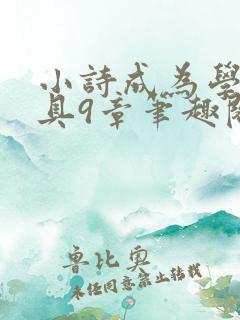 小詩成為學
具9章筆趣閣
魯比奧
未任同意禁止轉載